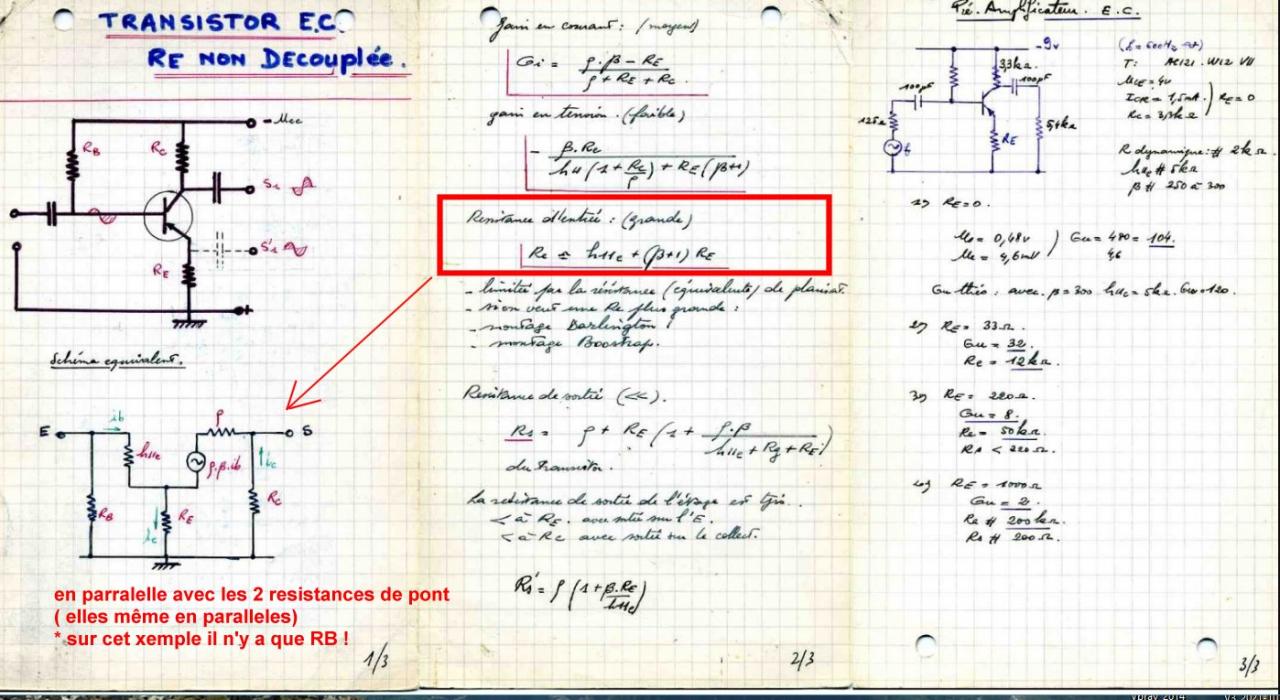 TRANSISTOR E.C.
RE NON DECOUPLÉE.
- Ucc
RB
RC
S1
S'1
RE
+
Schéma equivalent.
E
ib
h11e
ρ
S
ρ.β.ib
ic
RB
RE
RC
en parralelle avec les 2 resistances de pont
( elles même en paralleles)
* sur cet xemple il n'y a que RB !
1/3
Gain en courant : (moyen)
Gi = ρ.β - RE / ρ + RE + Rc
gain en tension . (faible)
- β.Rc / h11 (1 + Rc/ρ) + RE (β+1)
Resistance d'entrée : (grande)
Re ≃ h11e + (β+1) RE
- limitée par la résistance (équivalente) de
- si on veut une Re plus grande :
- montage Darlington !
- montage Boostrap.
Resistance de sortie (<<).
Rs = ρ + RE (1 + ρ.β / h11e + Rg + RE)
du transistor.
La resistance de sortie de l'étage est tjrs.
< à RE. avec sortie sur l'E.
< à Rc avec sortie sur le collect.
Rs' = ρ (1 + β.RE / h11e)
2/3
Pré. Amplificateur. E.C.
-9v
3,3kΩ
100µF
100µF
125Ω
5,4kΩ
RE
T: AC121.
UCE = 4v
ICR = 1,5mA
Rc = 3,3kΩ
RE = 0
R dynamique : # 2kΩ
h11e # 5kΩ
β # 250 à 300
1) RE = 0.
Us = 0,48v
Ue = 4,6mV
Gu = 480/4,6 = 104.
Gu théo : avec. β = 300 h11e = 5kΩ. Gu = 120.
2) RE = 33Ω.
Gu = 32
Re = 12kΩ.
3) RE = 220Ω.
Gu = 8.
Re = 50kΩ.
Rs < 220Ω.
4) RE = 1000Ω
Gu = 2.
Re # 200kΩ.
Rs # 200Ω.
3/3